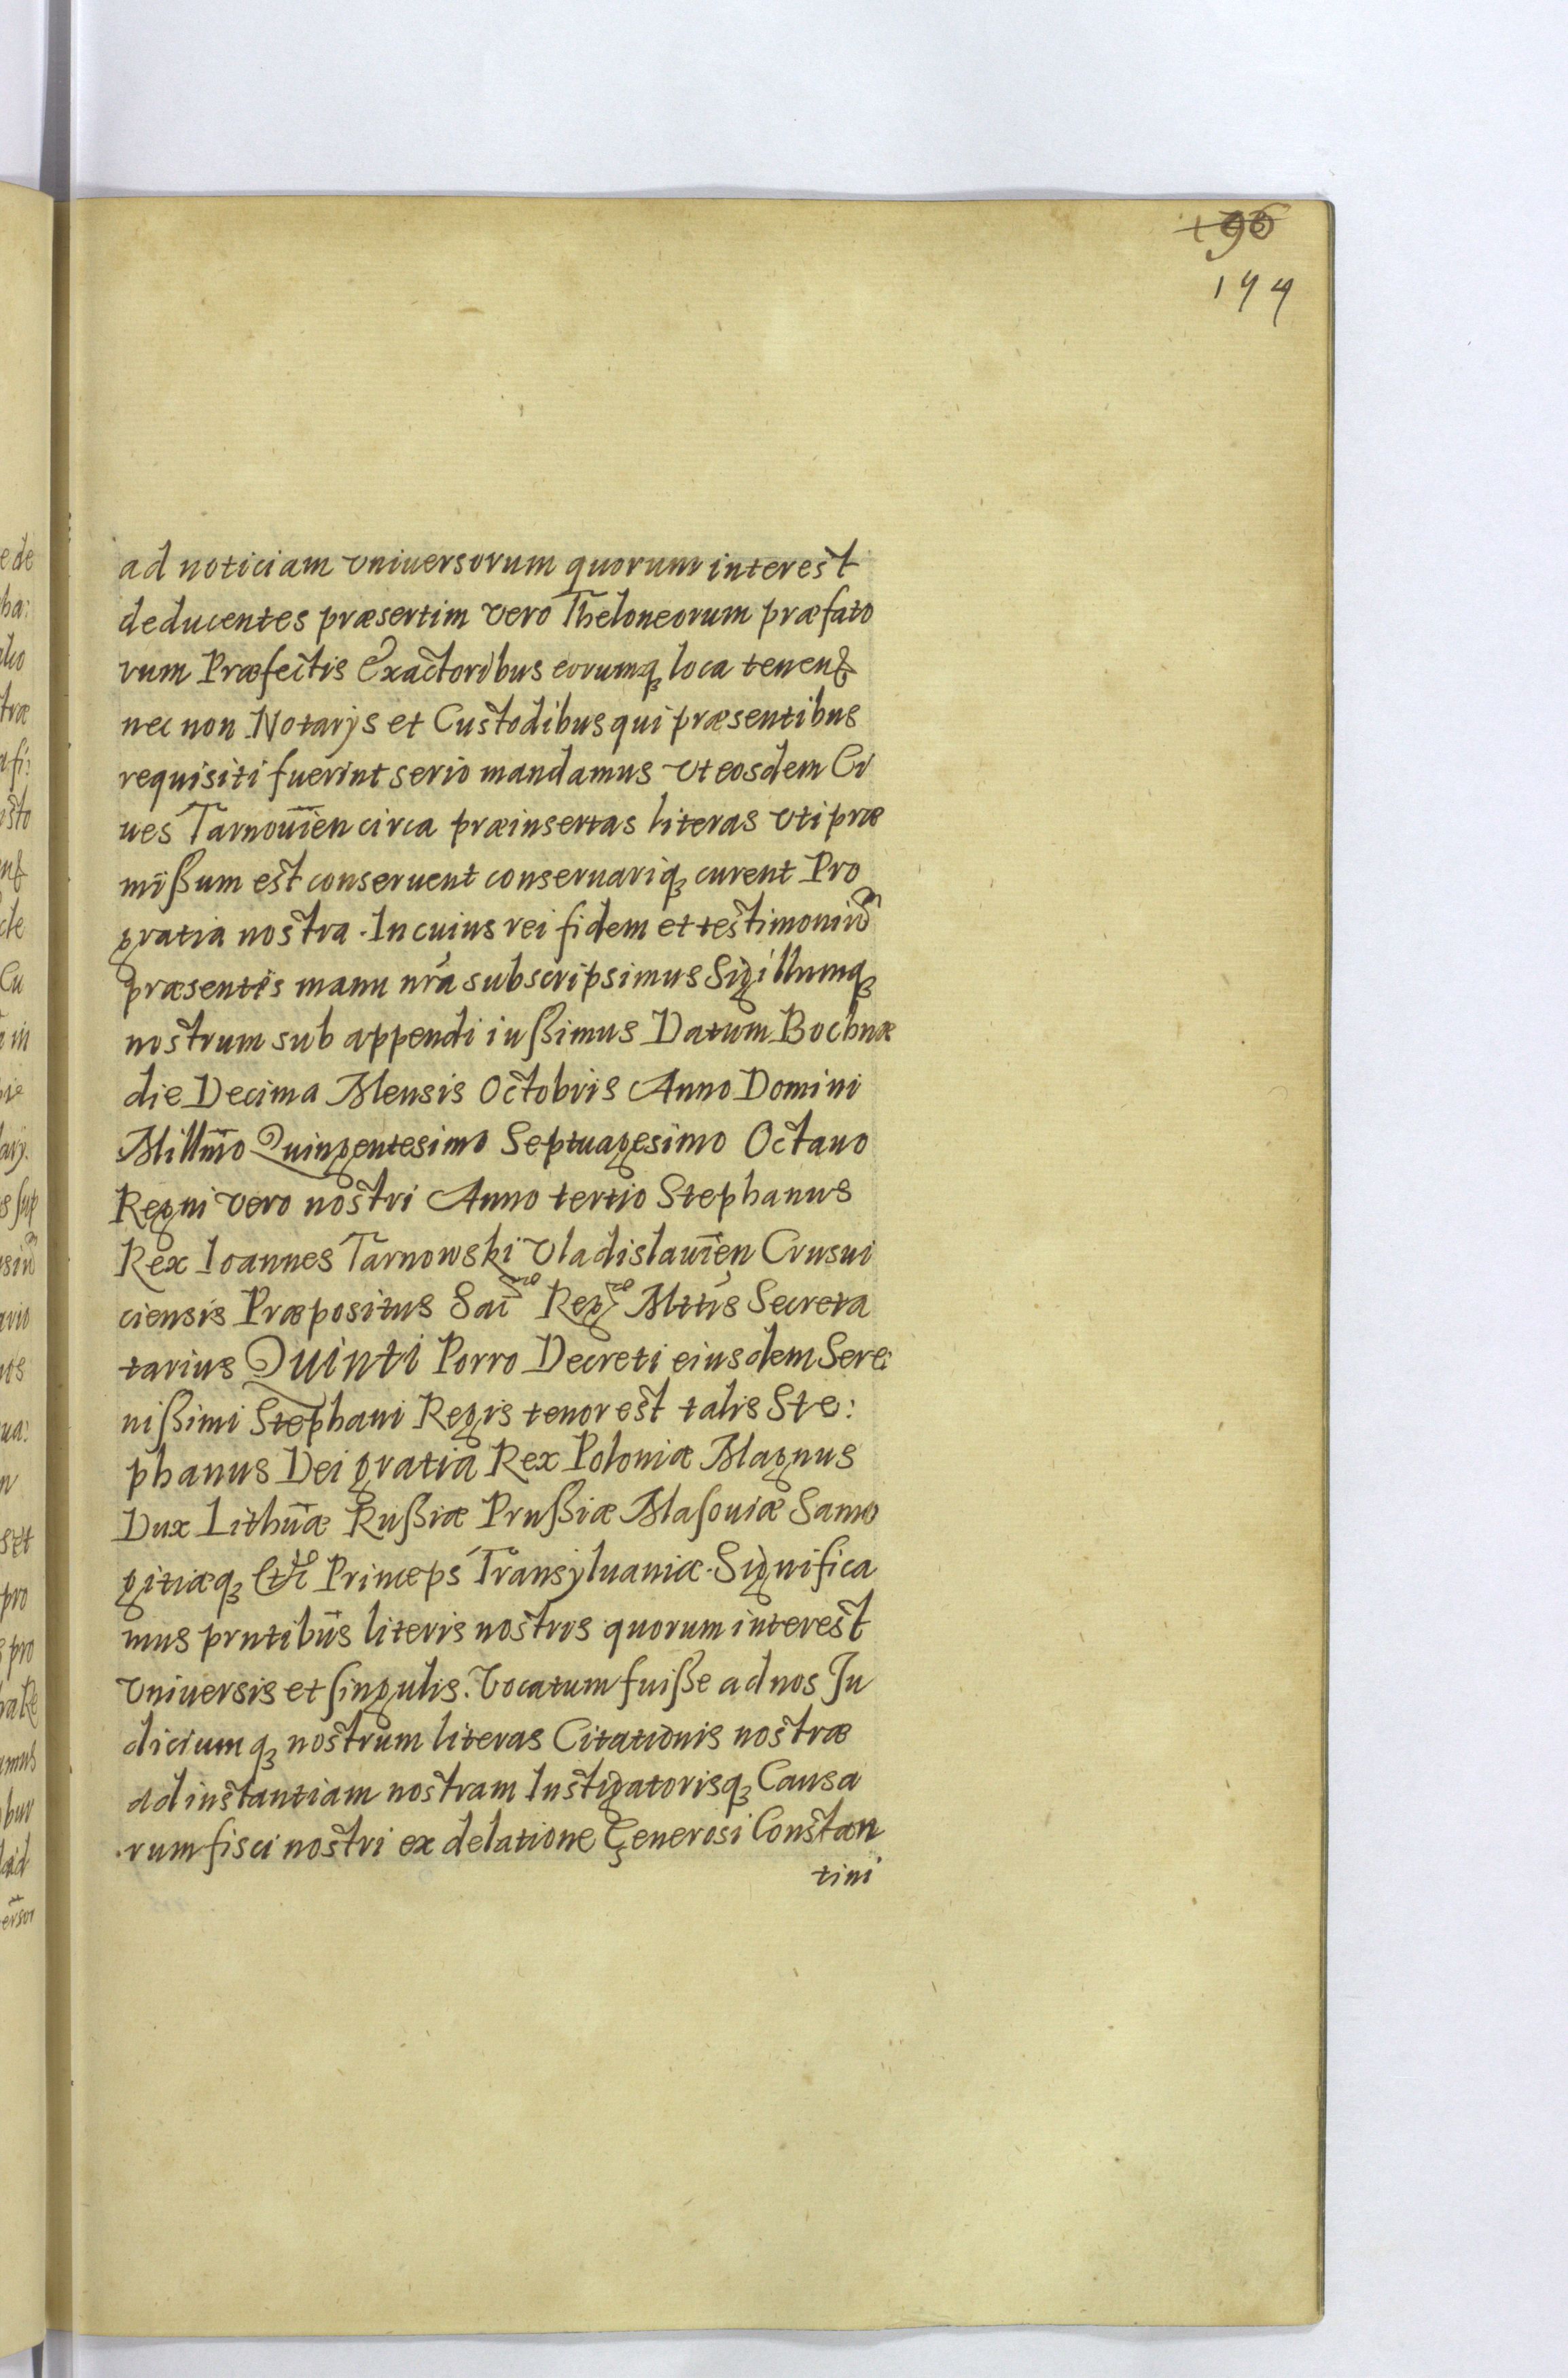 196
199
ad noticiam vniuersorum quorum interest
deducentes præsertim vero Theloneorum præfato
rum Præfectis Exactoribus eorumqꝫ loca tenenꝭ
nec non Notarijs et Custodibus qui præsentibus
requisiti fuerint serio mandamus vt eosdem Ci
ues Tarnouien̄ circa præinsertas literas vti præ
mißum est conseruent conseruariqꝫ curent Pro
gratia nostra. In cuius rei fidem et testimoniũ
præsentes manu nr̃a subscripsimus Sigillumqꝫ
nostrum sub appendi iußimus Datum Bochnæ
die Decima Mensis Octobris Anno Domini
Millm̄o Quingentesimo Septuagesimo Octauo
Regni vero nostri Anno tertio Stephanus
Rex Ioannes Tarnowski Vladislauien̄ Crusui
ciensis Præpositus Sac̄ræ Regiæ Mtt̃is Secreta
tarius Quinti Porro Decreti eiusdem Sere:
nißimi Stephani Regis tenor est talis Ste:
phanus Dei gratia Rex Poloniæ Magnus
Dux Lithũæ Rußiæ Prußiæ Masouiæ Samo
gitiæqꝫ Etc̃ Princeps Transyluaniæ. Significa
mus prntibũs literis nostris quorum interest
vniuersis et singulis. Vocatum fuiße ad nos Ju
diciumqꝫ nostrum literas Citationis nostræ
ad instantiam nostram Instigatorisqꝫ Causa
rum fisci nostri ex delatione Generosi Constan
tini